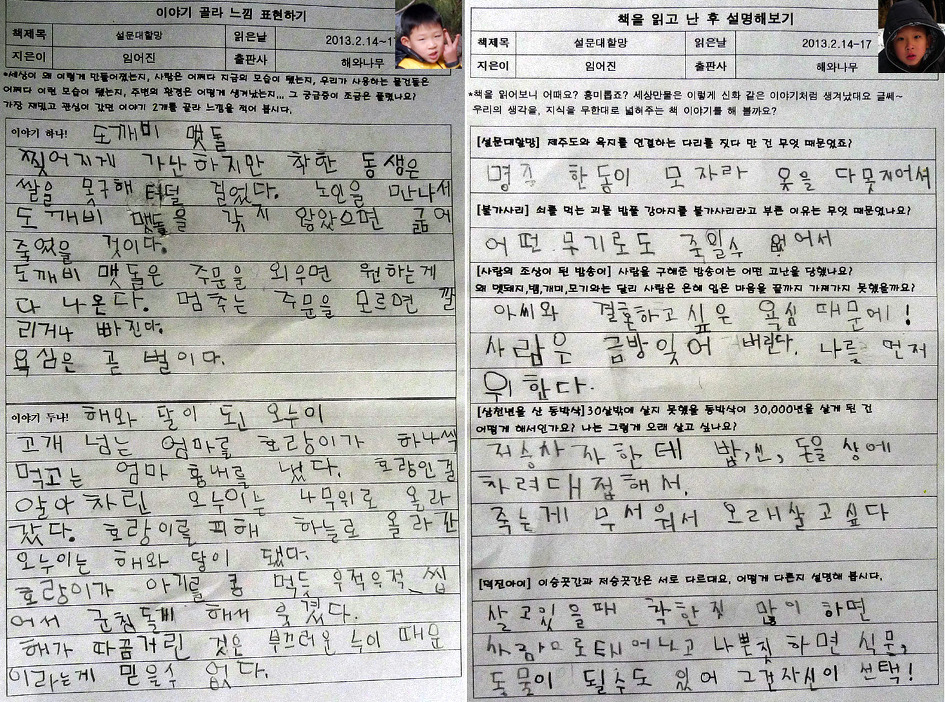 이야기 골라 느낌 표현하기
책제목 설문대할망 읽은날 2013.2.14~1
지은이 임어진 출판사 해와나무
*세상이 왜 이렇게 만들어졌는지, 사람은 어쩌다 지금의 모습이 됐는지, 우리가 사용하는 물건들은
어쩌다 이런 모습이 됐는지, 주변의 환경은 어떻게 생겨났는지... 그 궁금증이 조금은 풀렸나요?
가장 재밌고 관심이 갔던 이야기 2개를 골라 느낌을 적어 봅시다.
이야기 하나! 도깨비 맷돌
찢어지게 가난하지만 착한 동생은
쌀을 못구해 터덜 걸었다. 노인을 만나서
도깨비 맷돌을 갖지 않았으면 굶어
죽었을 것이다.
도깨비 맷돌은 주문을 외우면 원하는게
다 나온다. 멈추는 주문을 모르면 깔
리거나 빠진다.
욕심은 곧 벌이다.
이야기 두나! 해와 달이 된 오누이
고개 넘는 엄마를 호랑이가 하나씩
먹고는 엄마 흉내를 냈다. 호랑인걸
알아차린 오누이는 나무위로 올라
갔다. 호랑이를 피해 하늘로 올라간
오누이는 해와 달이 됐다.
호랑이가 아기를 콩 먹듯 우적우적 씹
어서 군침돌게 해서 웃겼다.
해가 따끔거린 것은 부끄러운 누이 때문
이라는게 믿을수 없다.
책을 읽고 난 후 설명해보기
책제목 설문대할망 읽은날 2013.2.14~17
지은이 임어진 출판사 해와나무
*책을 읽어보니 어때요? 흥미롭죠? 세상만물은 이렇게 신화 같은 이야기처럼 생겨났대요 글쎄~
우리의 생각을, 지식을 무한대로 넓혀주는 책 이야기를 해 볼까요?
[설문대할망] 제주도와 육지를 연결하는 다리를 짓다 만 건 무엇 때문였죠?
명주 한동이 모자라 옷을 다못지어서
[불가사리] 쇠를 먹는 괴물 밥풀 강아지를 불가사리라고 부른 이유는 무엇 때문였나요?
어떤 무기로도 죽일수 없어서
[사람의 조상이 된 밤송이] 사람을 구해준 밤송이는 어떤 고난을 당했나요?
왜 멧돼지,뱀,개미,모기와는 달리 사람은 은혜 입은 마음을 끝까지 가져가지 못했을까요?
아씨와 결혼하고싶은 욕심 때문에!
사람은 금방잊어 버린다. 나를 먼저
위한다.
[삼천년을 산 동박삭] 30살밖에 살지 못했을 동박삭이 30,000년을 살게 된 건
어떻게 해서인가요? 나는 그렇게 오래 살고 싶나요?
저승차사한테 밥,신, 돈을 상에
차려대접해서.
죽는게 무서워서 오래살고싶다
[덕진아이] 이승곳간과 저승곳간은 서로 다르대요, 어떻게 다른지 설명해 봅시다.
살고있을때 착한짓 많이 하면
사람으로태어나고 나쁜짓 하면 식물,
동물이 될수도 있어 그건자신이 선택!